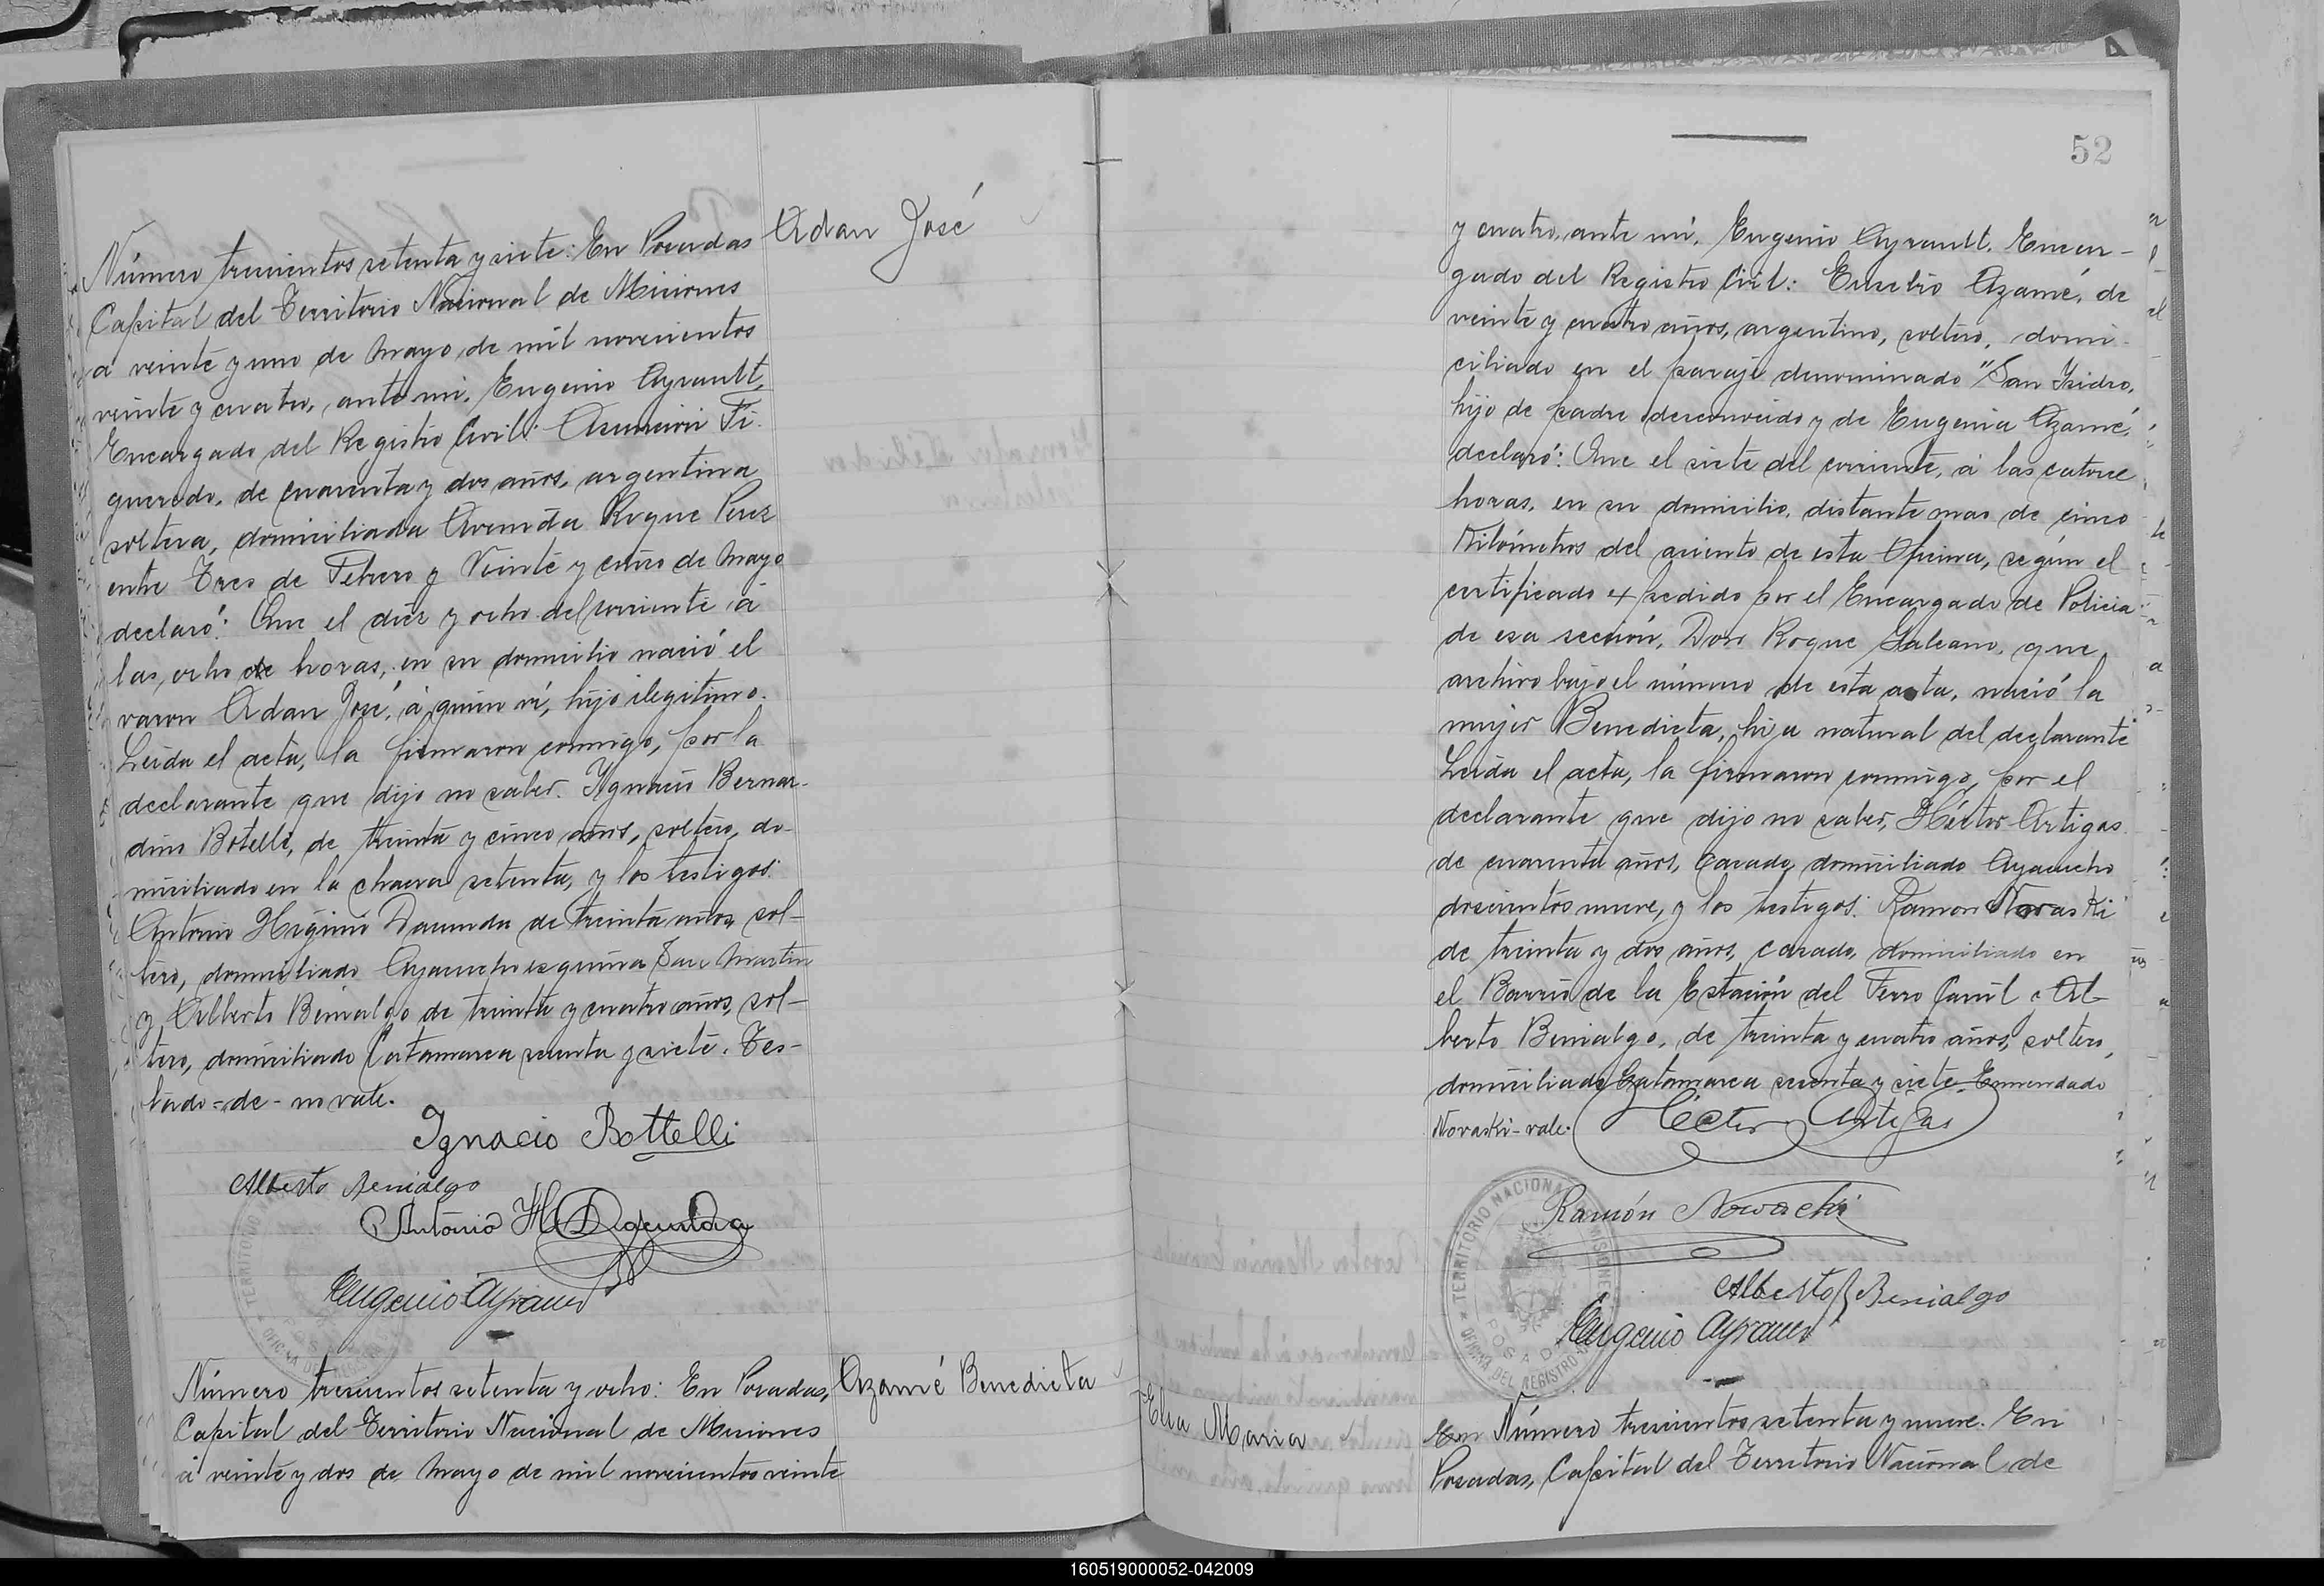 Adan José
Número trescientos setenta y siete: En Posadas
Capital del Territorio Nacional de Misiones
á veinte y uno de Mayo de mil novecientos
veinte y cuatro, ante mi, Eugenio Ayrault,
Encargado del Registro Civil: Asunción Fi-
gueredo, de cuarenta y dos años, argentina
soltera, domiciliada Avenida Roque Perez
entre Tres de Febrero y Veinte y cinco de Mayo
declaró: Que el diez y ocho del corriente á
las ocho de horas, en su domicilio nació el
varon Adan José, á quien ví, hijo ilegitimo.
Leida el acta, la firmaron conmigo, por la
declarante que dijo no saber, Ygnacio Bernar-
dino Botelli, de treinta y cinco años, soltero, do-
miciliado en la chacra setenta, y los testigos:
Antonio Higinio Dacunda de treinta años, sol-
tero, domiciliado Ayacucho esquina San Martin
y Alberto Benialgo de treinta y cuatro años, sol-
tero, domiciliado Catamarca sesenta y siete. Tes-
tado-de-no vale.
Ignacio Bottelli
Alberto Benialgo
Antonio H Dacunda
Eugenio Ayrault
Azamé Benedicta
Número trescientos setenta y ocho: En Posadas,
Capital del Territorio Nacional de Misiones
á veinte y dos de Mayo de mil novecientos veinte
52
y cuatro, ante mi, Eugenio Ayrault, Encar-
gado del Registro Civil: Eusebio Azamé, de
veinte y cuatro años, argentino, soltero, domi-
ciliado en el paraje denominado "San Isidro,
hijo de padre desconocido y de Eugenia Azamé,
declaró: Que el siete del corriente, á las catorce
horas, en su domicilio, distante mas de cinco
Kilómetros del asiento de esta Oficina, según el
certificado expedido por el Encargado de Policia
de esa sección, Don Roque Galeano, que
archivo bajo el número de esta acta, nació la
mujer Benedicta, hija natural del declarante
Leida el acta, la firmaron conmigo, por el
declarante que dijo no saber, Héctor Artigas
de cuarenta años, casado, domiciliado Ayacucho
doscientos nueve, y los testigos: Ramon Novaski
de treinta y dos años, casado, domiciliado en
el Barrio de la Estación del Ferro Carril y Al-
berto Benialgo, de treinta y cuatro años, soltero,
domiciliado Catamarca sesenta y siete. Enmendado
Novaski-vale.
Héctor Artigas
Ramón Nowacki
Alberto Benialgo
Eugenio Ayrault
TERRITORIO NACIONAL MISIONES
POSADAS
OFICINA DEL REGISTRO
Elsa Maria
En Número trescientos setenta y nueve. En
Posadas, Capital del Territorio Nacional de
160519000052-042009